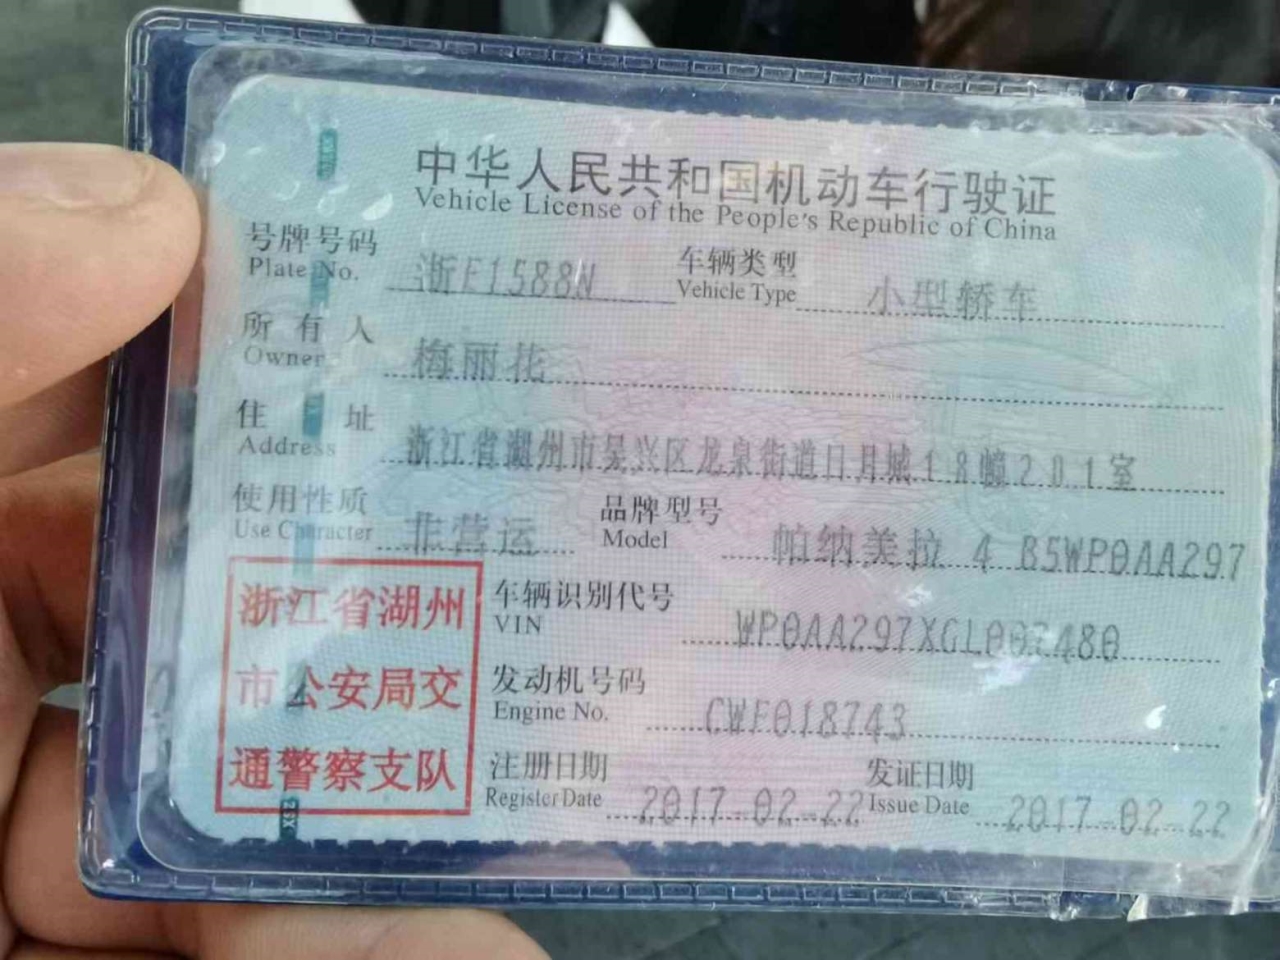 中华人民共和国机动车行驶证
Vehicle License of the People's Republic of China
号牌号码 浙E1588N 车辆类型 小型轿车
Plate No. Vehicle Type
所有人 梅丽花
Owner
住址 浙江省湖州市吴兴区龙泉街道日月城18幢201室
Address
使用性质 非营运 品牌型号 帕纳美拉 4 B5WP0AA297
Use Character Model
浙江省湖州
市公安局交
通警察支队
车辆识别代号
VIN
发动机号码 CWF018743
Engine No.
注册日期 2017-02-22 发证日期 2017-02-22
Register Date Issue Date